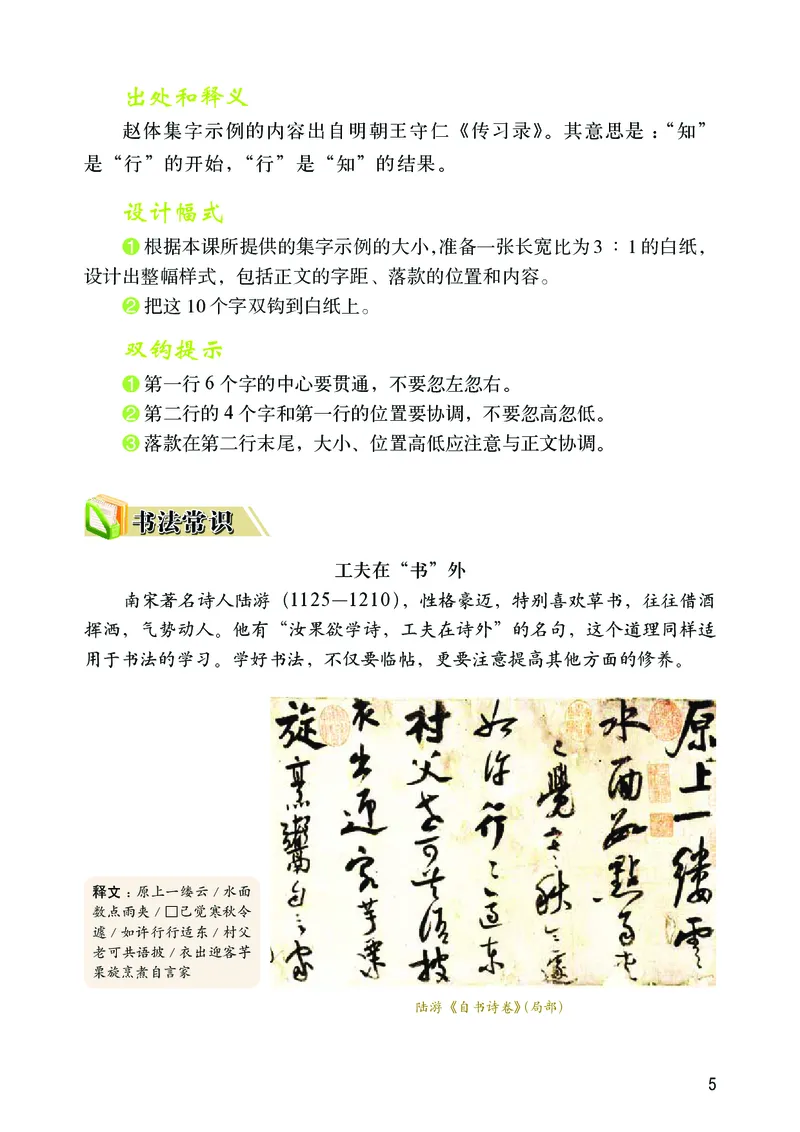 出处和释义
赵体集字示例的内容出自明朝王守仁《传习录》。其意思是：“知”
是“行”的开始，“行”是“知”的结果。
设计幅式
❶根据本课所提供的集字示例的大小，准备一张长宽比为3∶1的白纸，
设计出整幅样式，包括正文的字距、落款的位置和内容。
❷把这10个字双钩到白纸上。
双钩提示
❶第一行6个字的中心要贯通，不要忽左忽右。
❷第二行的4个字和第一行的位置要协调，不要忽高忽低。
❸落款在第二行末尾，大小、位置高低应注意与正文协调。
书法常识
工夫在“书”外
南宋著名诗人陆游（1125—1210），性格豪迈，特别喜欢草书，往往借酒
挥洒，气势动人。他有“汝果欲学诗，工夫在诗外”的名句，这个道理同样适
用于书法的学习。学好书法，不仅要临帖，更要注意提高其他方面的修养。
原上一缕云
水面数點雨夹
已覺寒秋令遽
如许行行适东
村父老可共语披
衣出迎客芋栗
旋烹鬻自言家
释文：原上一缕云/水面
数点雨夹/□已觉寒秋令
遽/如许行行适东/村父
老可共语披/衣出迎客芋
栗旋烹煮自言家
陆游《自书诗卷》（局部）
5